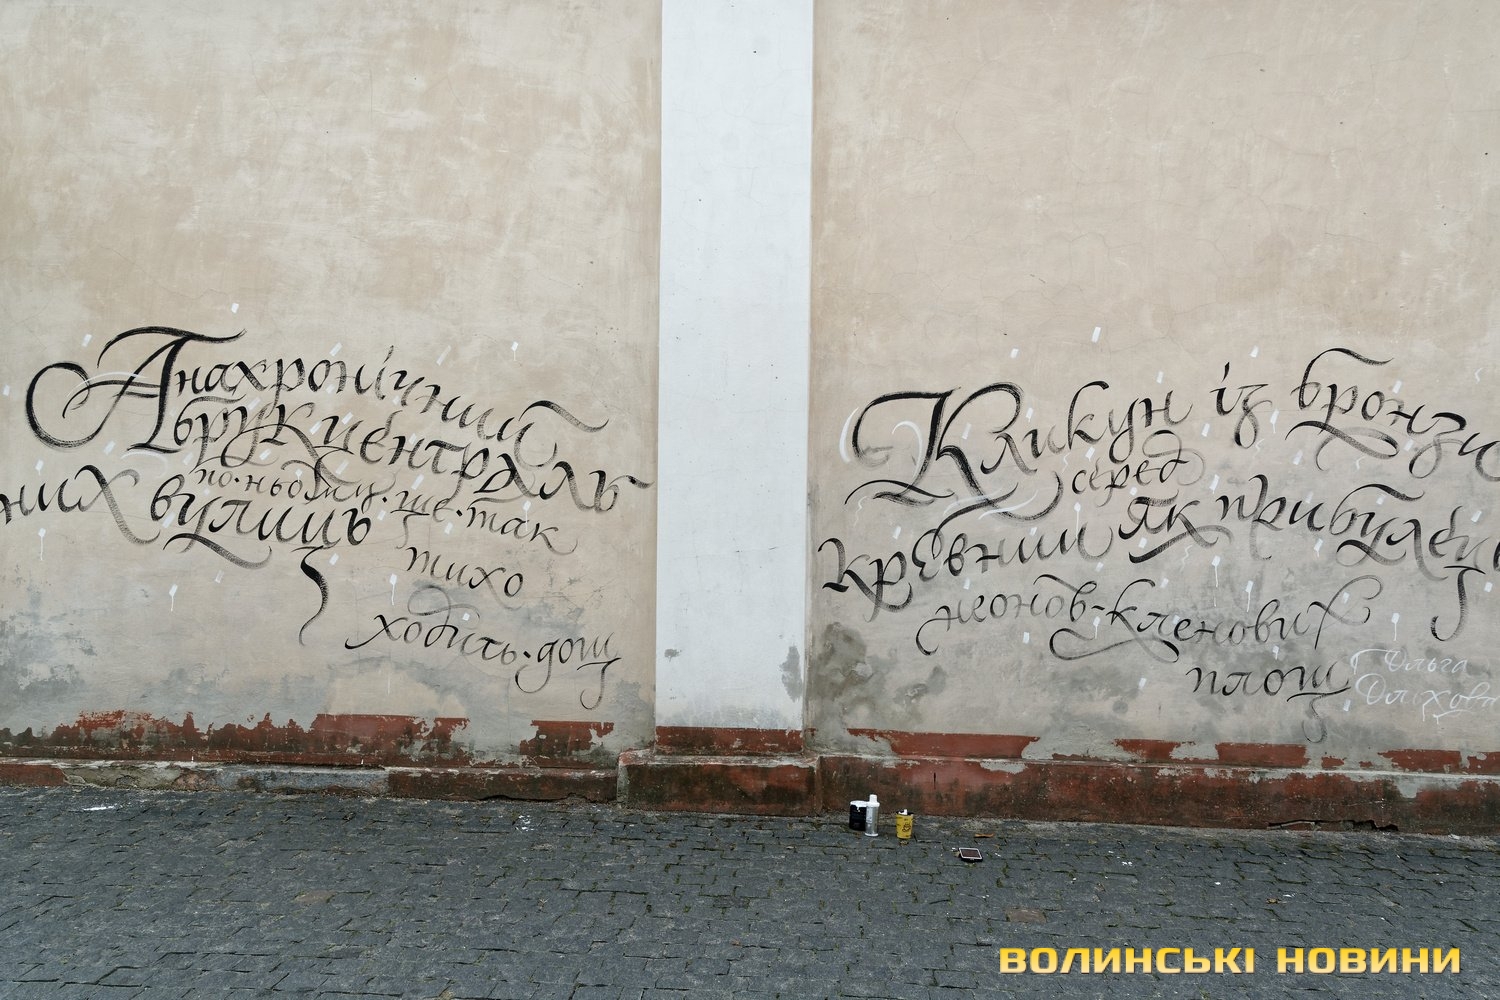 Анахронічний
брук централь
них вулиць
по ньому ще так
тихо
ходить дощ
Кликун із бронзи
серед
кревний як прибулець
неонов-кленових
площ
Ольга
Оліхов
ВОЛИНСЬКІ НОВИНИ